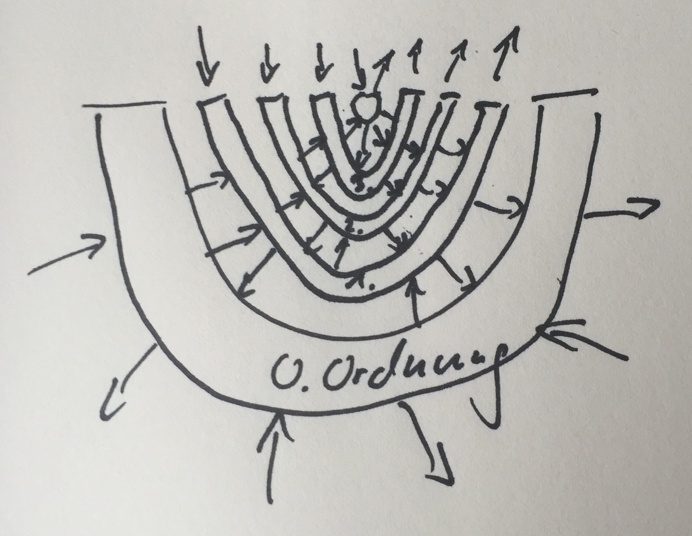 0. Ordnung